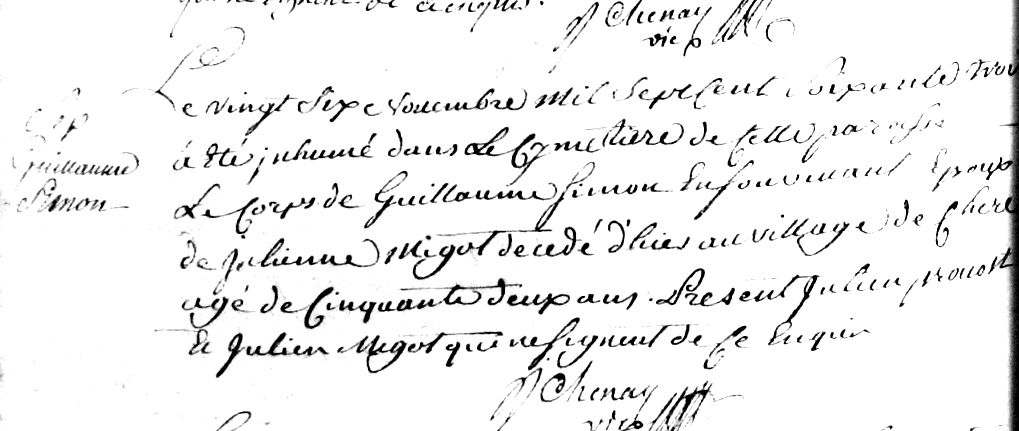 J Chenay
vic
Sep
Guillaume
Simon
Le vingt six e Novembre mil Sept Cent Soixante trois
á êté jnhumé dans Le Cymetiere de Cette paroisse
Le Corps de Guillaume Simon Ensonvivant Epoux
de Julienne Migot decedé d'hier au village de Chere
agé de Cinquante deux ans. Present Julien prouost
Et Julien Migot qui ne signent de Ce Enquis
J Chenay
vic